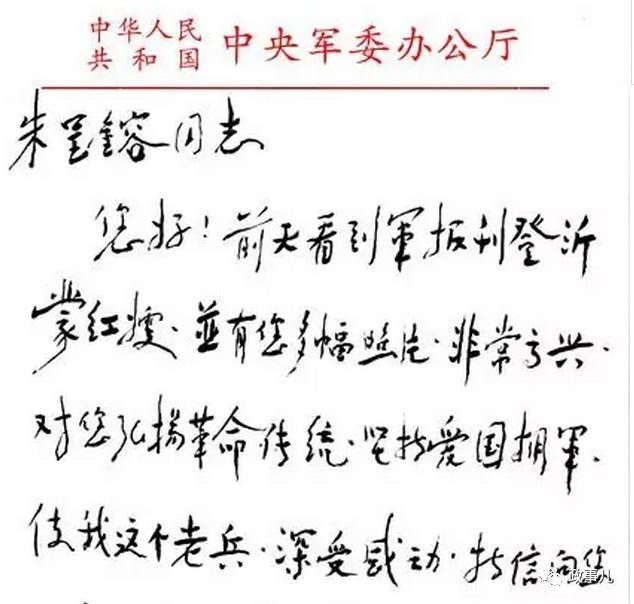 中华人民
共和国 中央军委办公厅
朱呈鎔同志
您好！前天看到軍报刊登沂
蒙红嫂、並有您多幅照片、非常高兴、
对您弘揚革命传统、坚持爱国拥軍、
使我这个老兵、深受感动、特信向您
政事儿